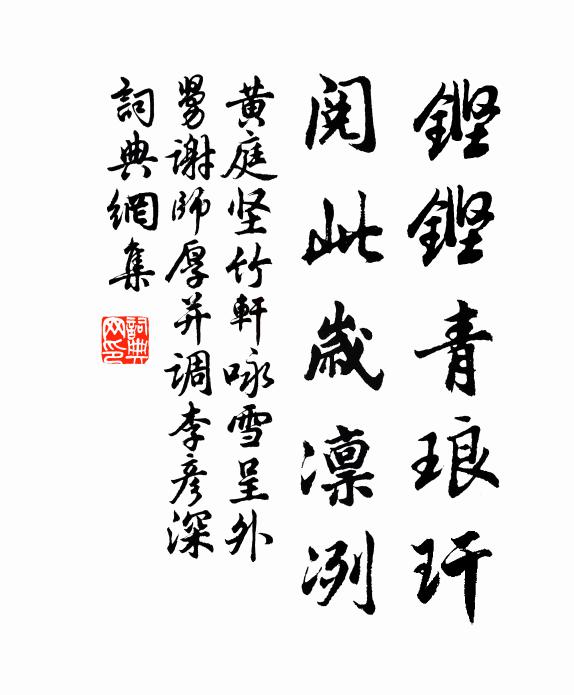 鏗鏗青琅玕
閱此歲凛冽
黄庭坚竹軒咏雪呈外
舅謝師厚并調李彦深
詞典網集
詞典网印